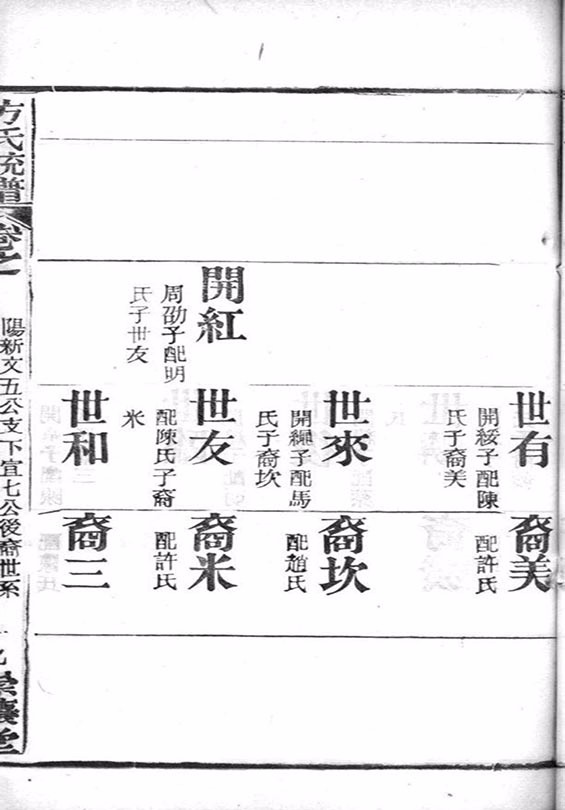 世有
開綏子配陳
氏子裔美
裔美
配許氏
世來
開繩子配馬
氏子裔坎
裔坎
配趙氏
開紅
周劭子配明
氏子世友
世友
配陳氏子裔
米
裔米
配許氏
世和
裔三
方氏統譜
卷之
陽新文五公支下宜七公後裔世系